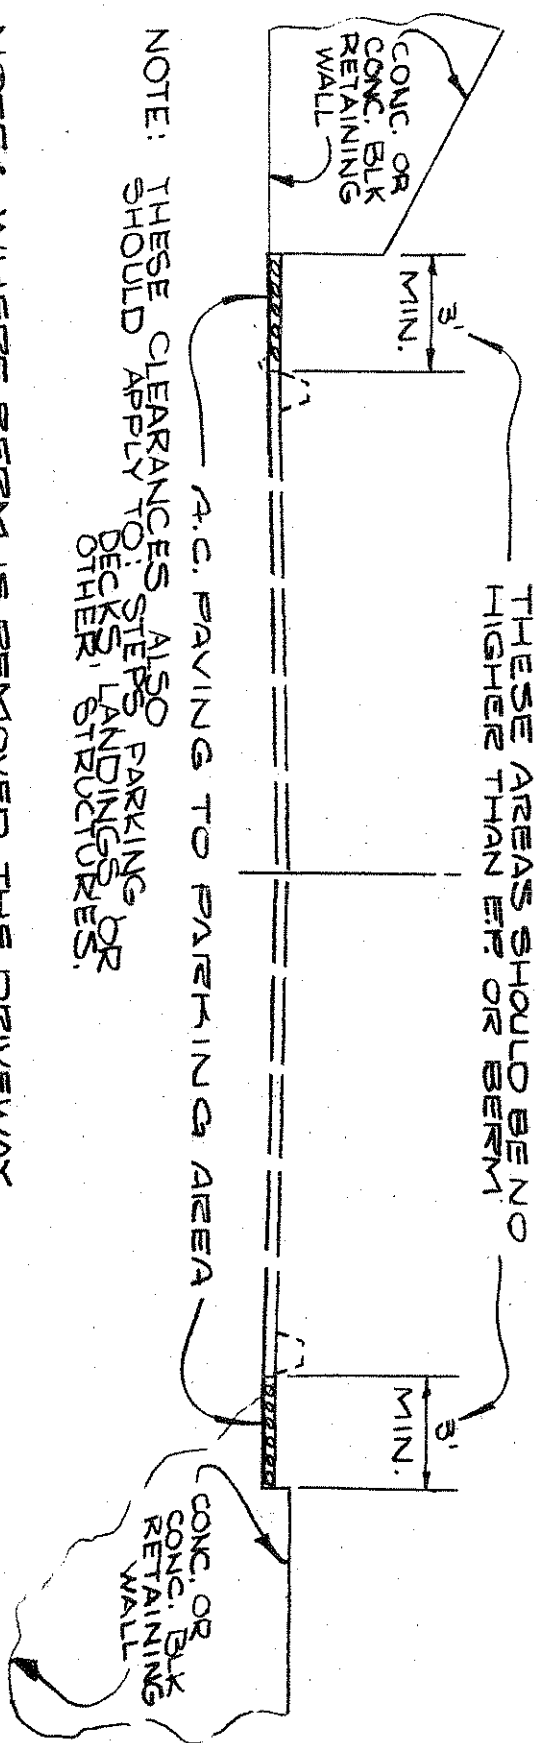 THESE AREAS SHOULD BE NO
HIGHER THAN E.P. OR BERM
3'
MIN.
3'
MIN.
CONC. OR
CONC. BLK
RETAINING
WALL
CONC. OR
CONC. BLK
RETAINING
WALL
A.C. PAVING TO PARKING AREA
NOTE: THESE CLEARANCES ALSO
SHOULD APPLY TO: STEPS PARKING
DECKS, LANDINGS OR
OTHER STRUCTURES.
NOTE: WHERE BERM IS REMOVED THE DRIVEWAY